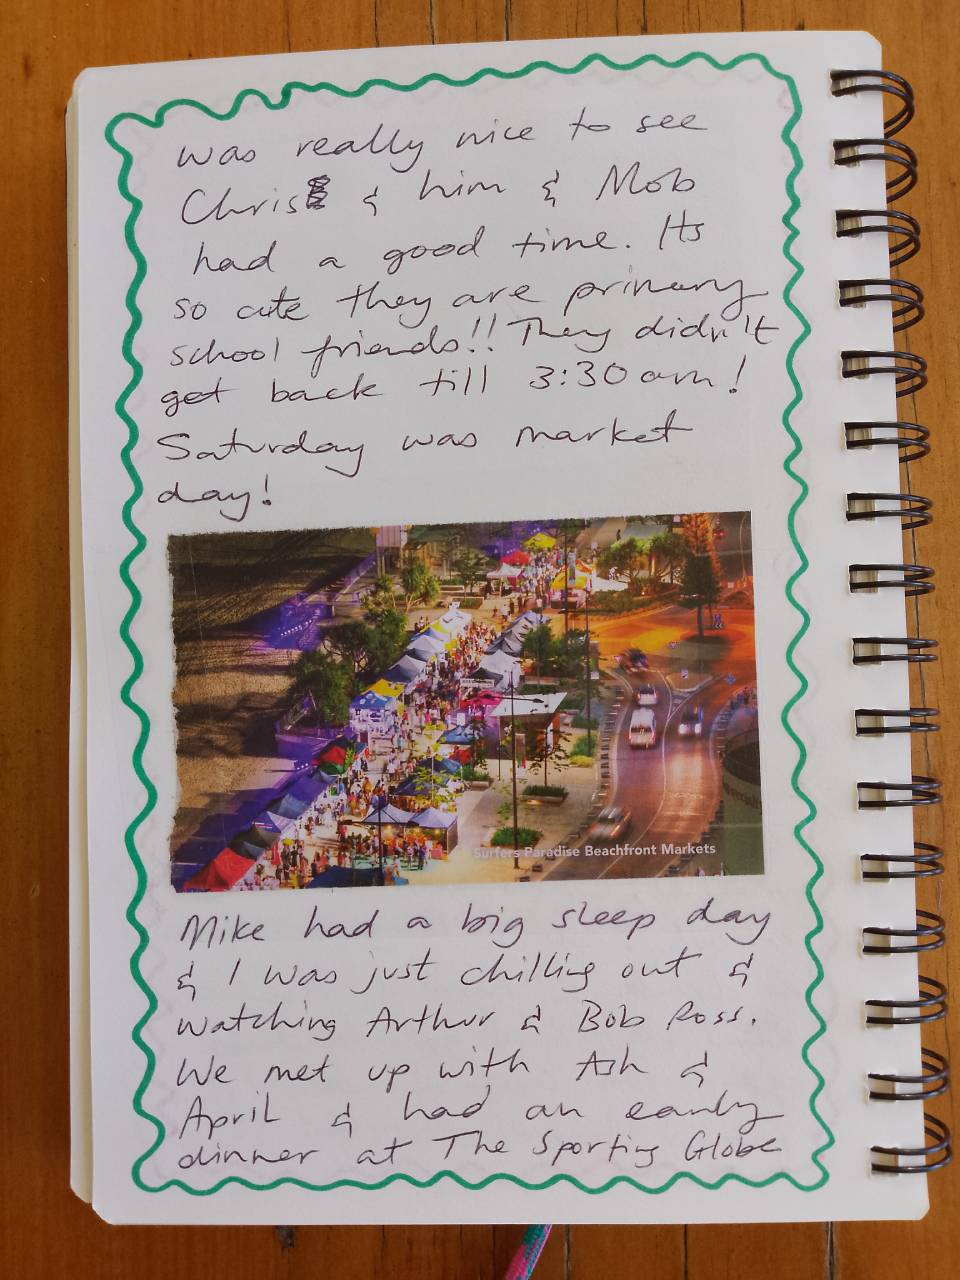 was really nice to see
Chris & him & Mob
had a good time. Its
so cute they are primary
school friends!! They didn't
get back till 3:30am!
Saturday was market
day!
Surfers Paradise Beachfront Markets
Mike had a big sleep day
& I was just chilling out &
watching Arthur & Bob Ross.
We met up with Ash &
April & had an early
dinner at The Sporting Globe